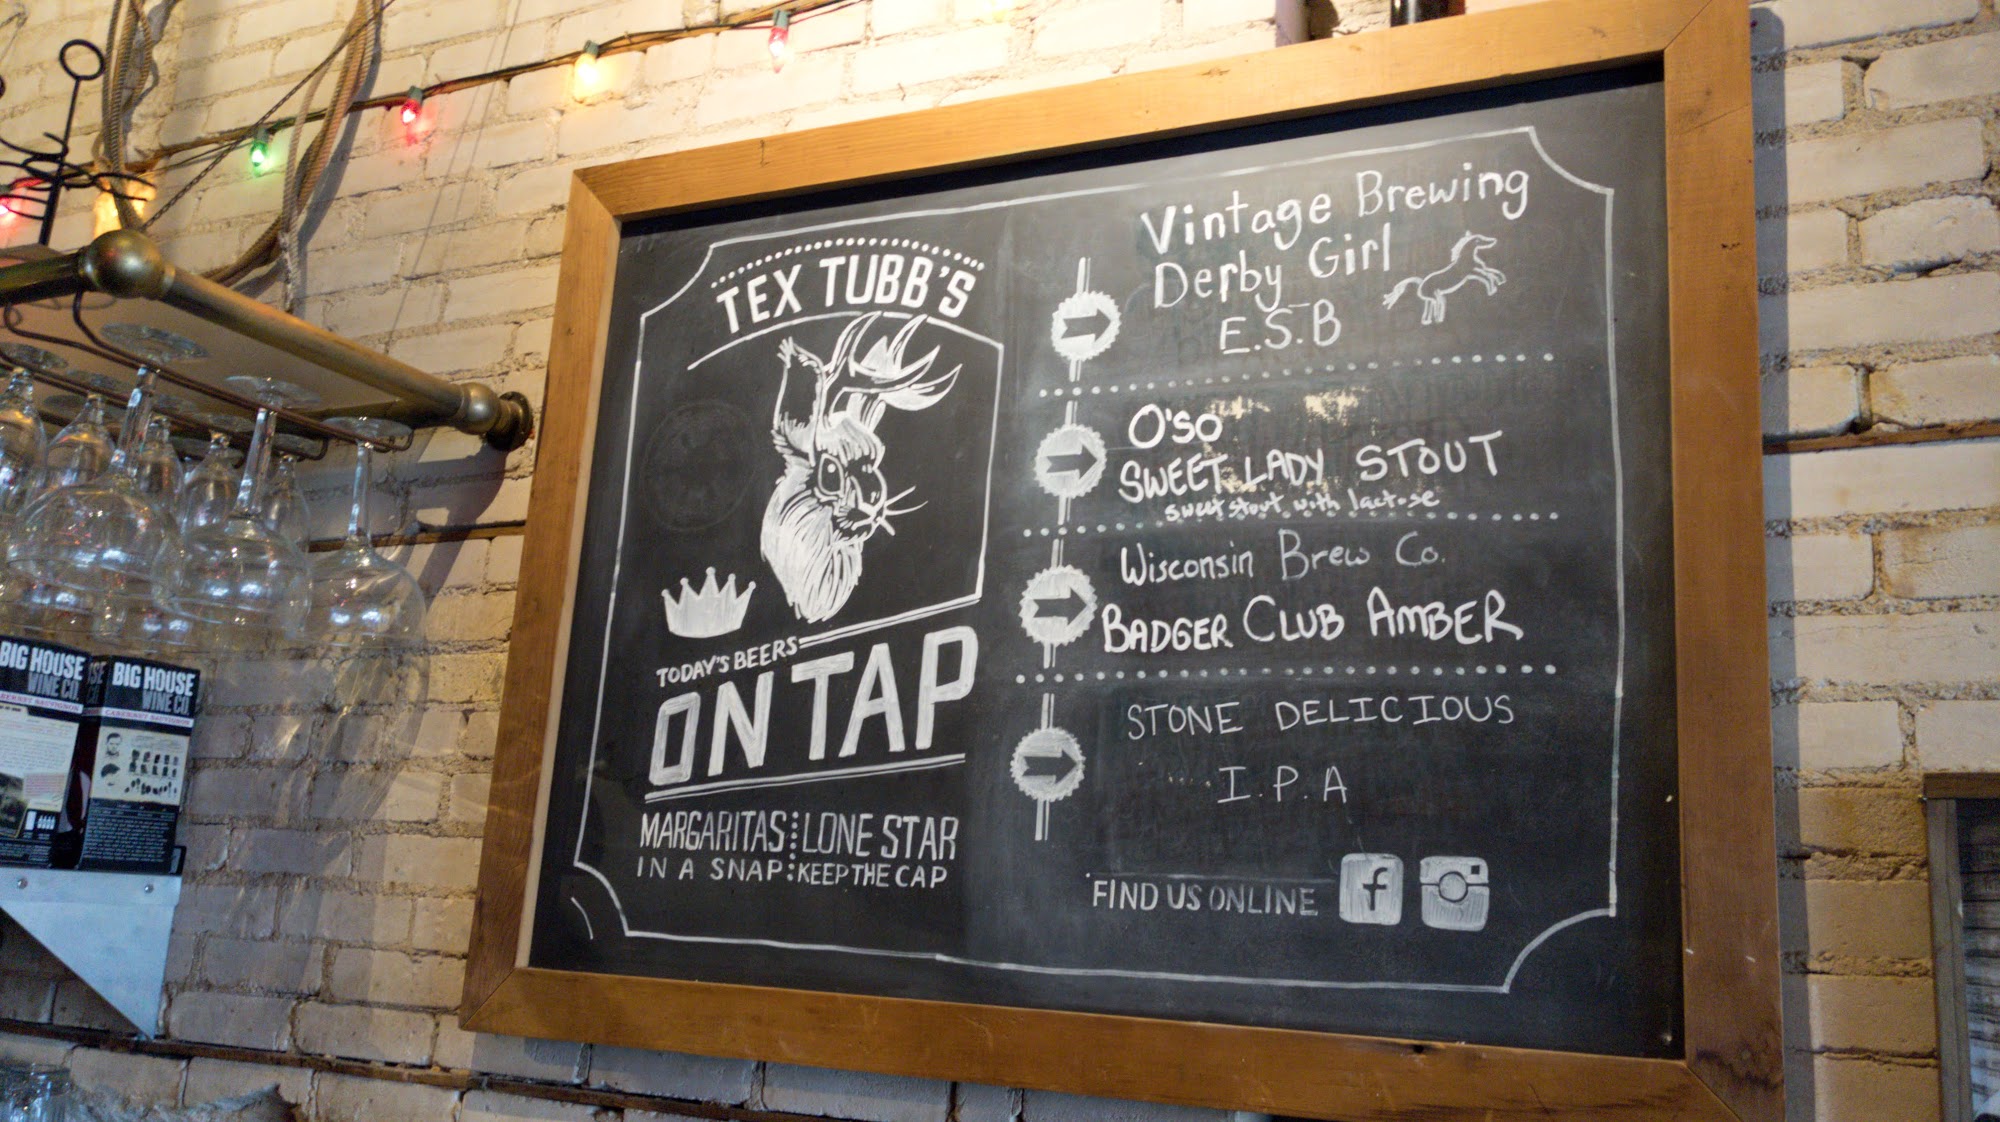 TEX TUBB'S
TODAY'S BEERS
ON TAP
MARGARITAS
IN A SNAP
LONE STAR
KEEP THE CAP
Vintage Brewing
Derby Girl
E.S.B
O'so
SWEET LADY STOUT
sweet stout with lactose
Wisconsin Brew Co.
BADGER CLUB AMBER
STONE DELICIOUS
I.P.A
FIND US ONLINE
f
BIG HOUSE
WINE CO.
BIG HOUSE
WINE CO.
CABERNET SAUVIGNON